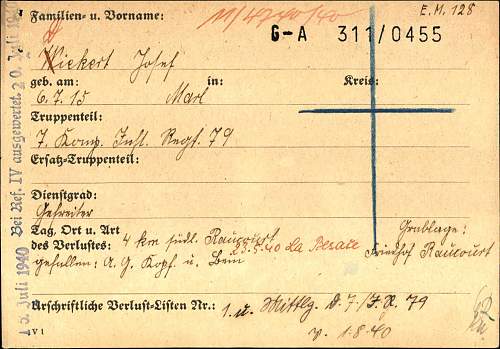 Familien- u. Vorname: 11/4740/40 E.M. 128
G-A 311/0455
Wickert Josef
geb. am: in: Kreis:
6.7.15 Marl
Truppenteil:
7. Komp. Inf. Regt. 79
Ersatz-Truppenteil:
Dienstgrad:
Gefreiter
Tag, Ort u. Art
des Verlustes: 4 km südl. Raucourt
.5.40 La Besace
gefallen: A.G. Kopf u. Bein
Grablage:
Friedhof Raucourt
Urschriftliche Verlust-Listen Nr.: 1. u. Mittlg. d. 7./I.R. 79
v. 1.8.40
V 1
Juli 1940 Bei Ref. IV ausgewertet 20. Juli